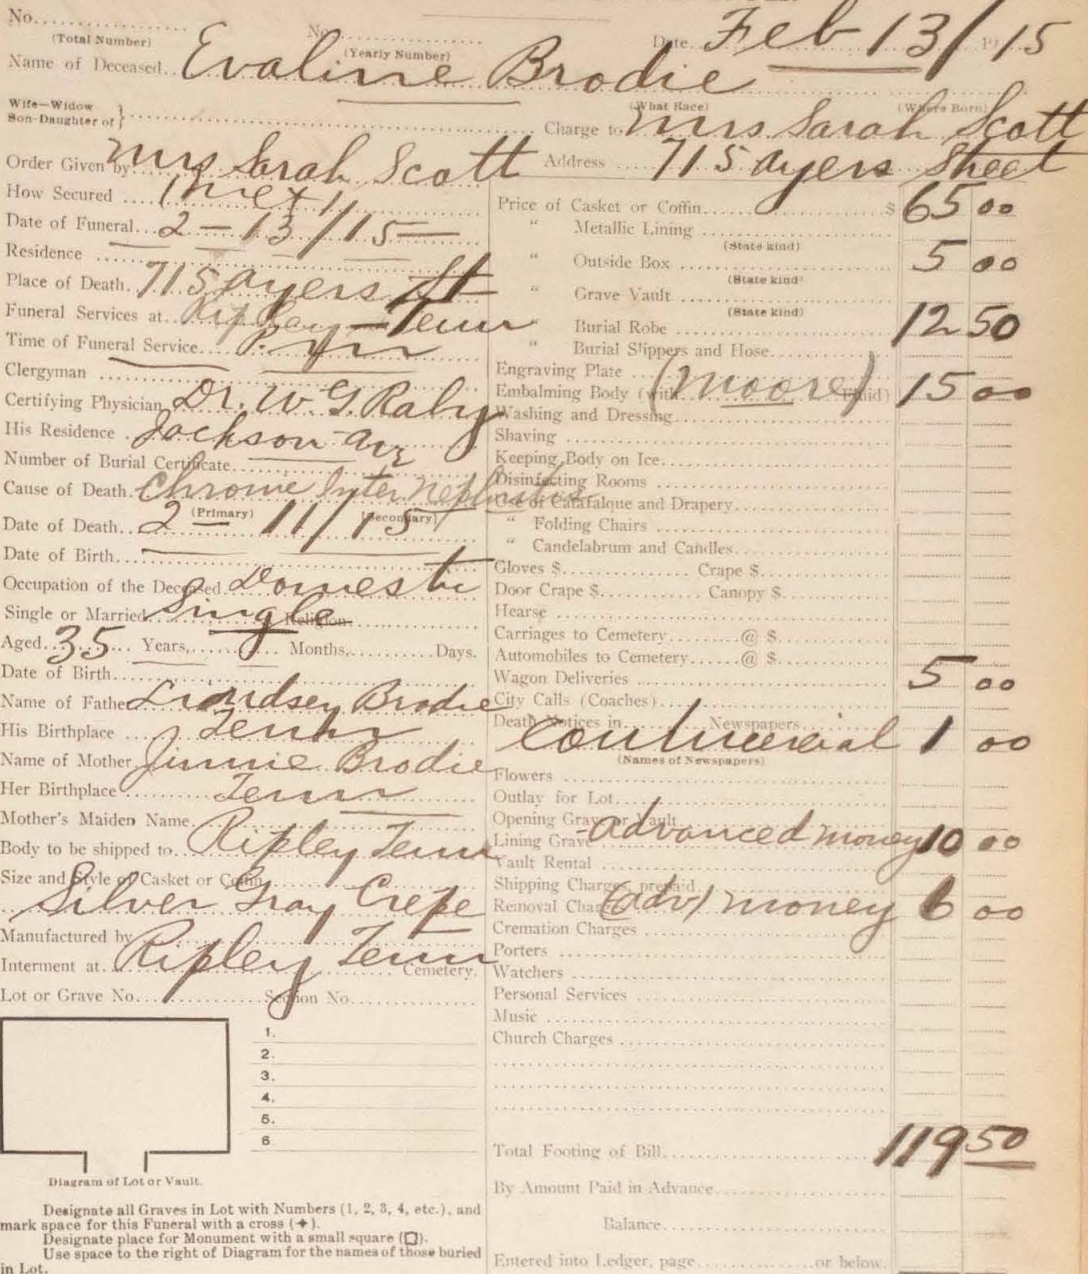 No.
(Total Number)
No.
(Yearly Number)
Date. Feb 13/ 1915
Name of Deceased.. Evaline Brodie
Wife—Widow
Son-Daughter of }
(What Race)
(Where Born)
Charge to Mrs Sarah Scott
Order Given by Mrs Sarah Scott
Address 715 Ayers Street
How Secured
Date of Funeral 2 — 13/15—
Residence
Place of Death. 715 Ayers St
Funeral Services at. Ripley—Tenn
Time of Funeral Service
Clergyman
Certifying Physician Dr. W. G. Raby
His Residence Jackson Av
Number of Burial Certificate
Cause of Death. Chronic Inter Nephritis
(Primary) (Secondary)
Date of Death.. 2 — 11/15
Date of Birth
Occupation of the Deceased. Domestic
Single or Married. Single Religion
Aged. 35 Years, Months, Days.
Date of Birth
Name of Father Lindsey Brodie
His Birthplace Tenn
Name of Mother Jinnie Brodie
Her Birthplace Tenn
Mother's Maiden Name
Body to be shipped to. Ripley Tenn
Size and Style of Casket or Coffin
Silver Gray Crepe
Manufactured by
Interment at. Ripley Tenn Cemetery.
Lot or Grave No. Section No.
1.
2.
3.
4.
5.
6
Diagram of Lot or Vault.
Designate all Graves in Lot with Numbers (1, 2, 3, 4, etc.), and
mark space for this Funeral with a cross (✦).
Designate place for Monument with a small square (▢).
Use space to the right of Diagram for the names of those buried
in Lot.
Price of Casket or Coffin $ 65 00
" Metallic Lining
(State kind)
" Outside Box 5 00
(State kind)
" Grave Vault
(State kind)
" Burial Robe 12 50
" Burial Slippers and Hose
Engraving Plate
Embalming Body (with (Moore) Fluid) 15 00
Washing and Dressing
Shaving
Keeping Body on Ice
Disinfecting Rooms
Use of Catafalque and Drapery
" Folding Chairs
" Candelabrum and Candles
Gloves $ Crape $
Door Crape $ Canopy $
Hearse
Carriages to Cemetery @ $
Automobiles to Cemetery @ $
Wagon Deliveries 5 00
City Calls (Coaches)
Death Notices in Newspapers
Commercial 1 00
(Names of Newspapers)
Flowers
Outlay for Lot
Opening Grave or Vault
Lining Grave - advanced money 10 00
Vault Rental
Shipping Charges, prepaid
Removal Charges (adv) money 6 00
Cremation Charges
Porters
Watchers
Personal Services
Music
Church Charges
Total Footing of Bill 119 50
By Amount Paid in Advance
Balance
Entered into Ledger, page or below.